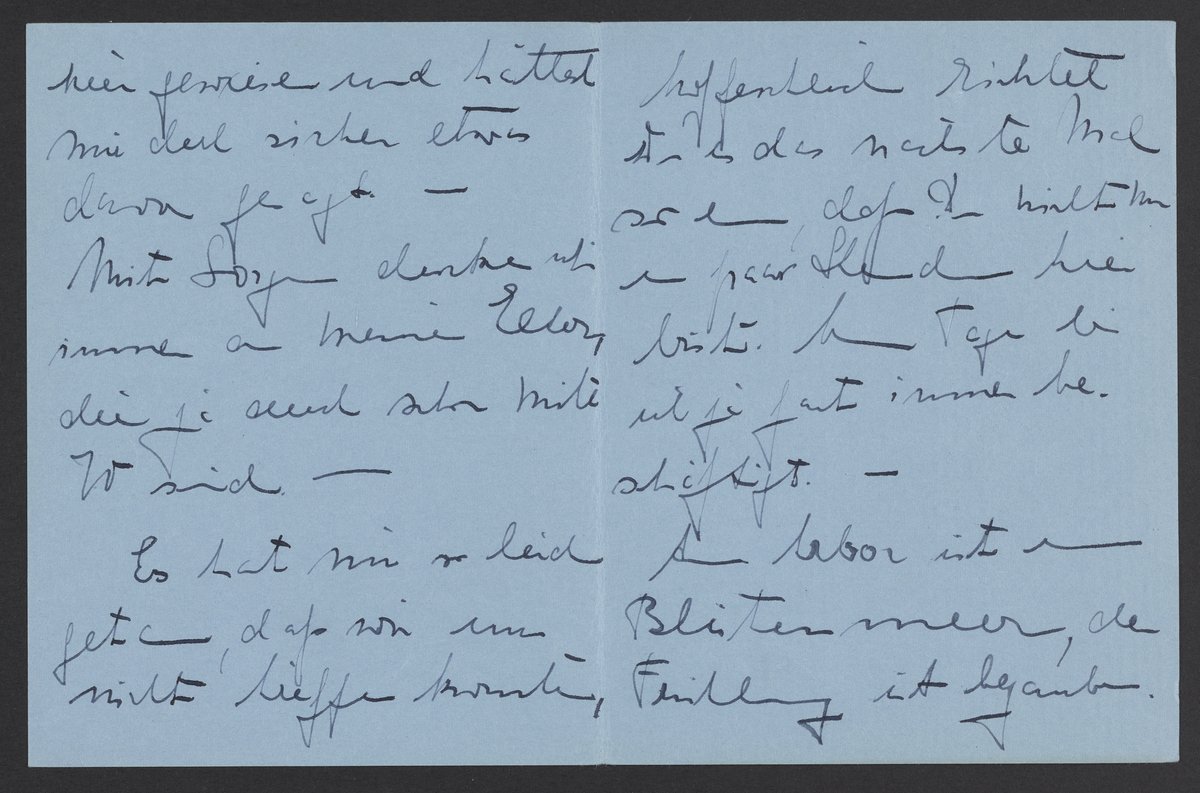 hier gewesen und hättest
mir doch sicher etwas
davon gesagt. —
Mit Sorgen denke ich
immer an meine Eltern,
die ja auch schon Mitte
70 sind. —
Es hat mir so leid
getan, daß wir uns
nicht treffen konnten,
hoffentlich richtet
Du es das nächste Mal
so ein, daß Du nicht nur
ein paar Stunden hier
bist. Am Tage bin
ich ja fast immer be-
schäftigt. —
Am ist ein
Blütenmeer, der
Frühling ist